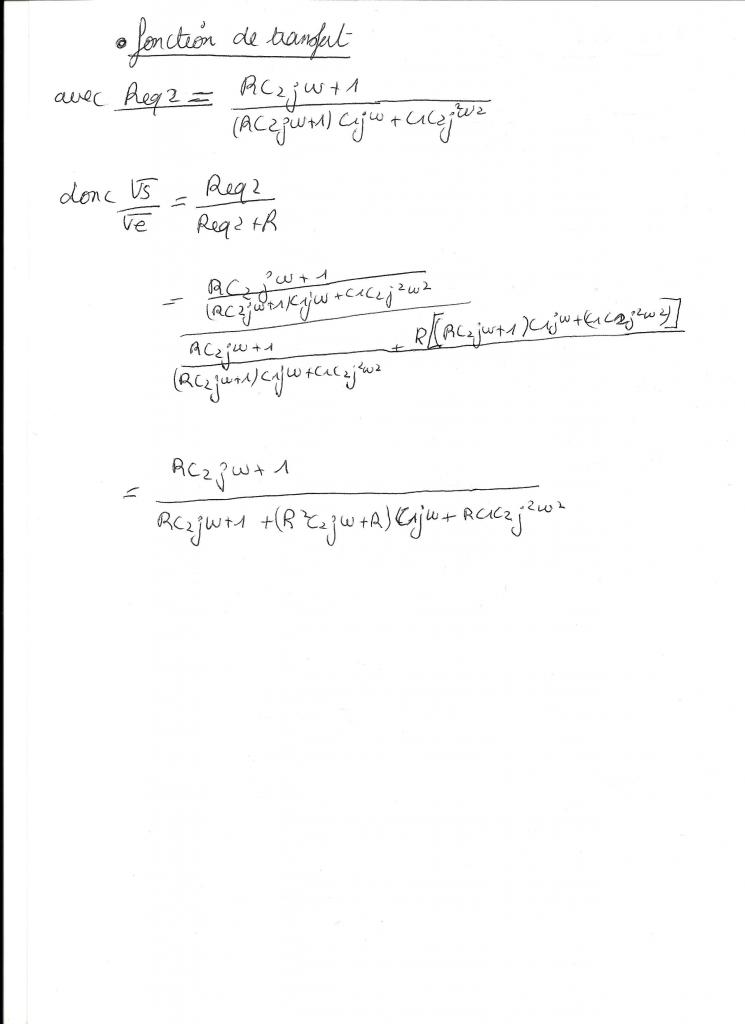 • fonction de transfert
avec Req2 = RC2jω+1 / (RC2jω+1) C1jω + C1C2j²ω²
donc Vs/Ve = Req2 / Req2+R
= RC2jω+1 / (RC2jω+1)C1jω+C1C2j²ω² / RC2jω+1 / (RC2jω+1)C1jω+C1C2j²ω² + R[(RC2jω+1)C1jω+(C1C2j²ω²)]
= RC2jω+1 / RC2jω+1 +(R²C2jω+R)C1jω+RC1C2j²ω²